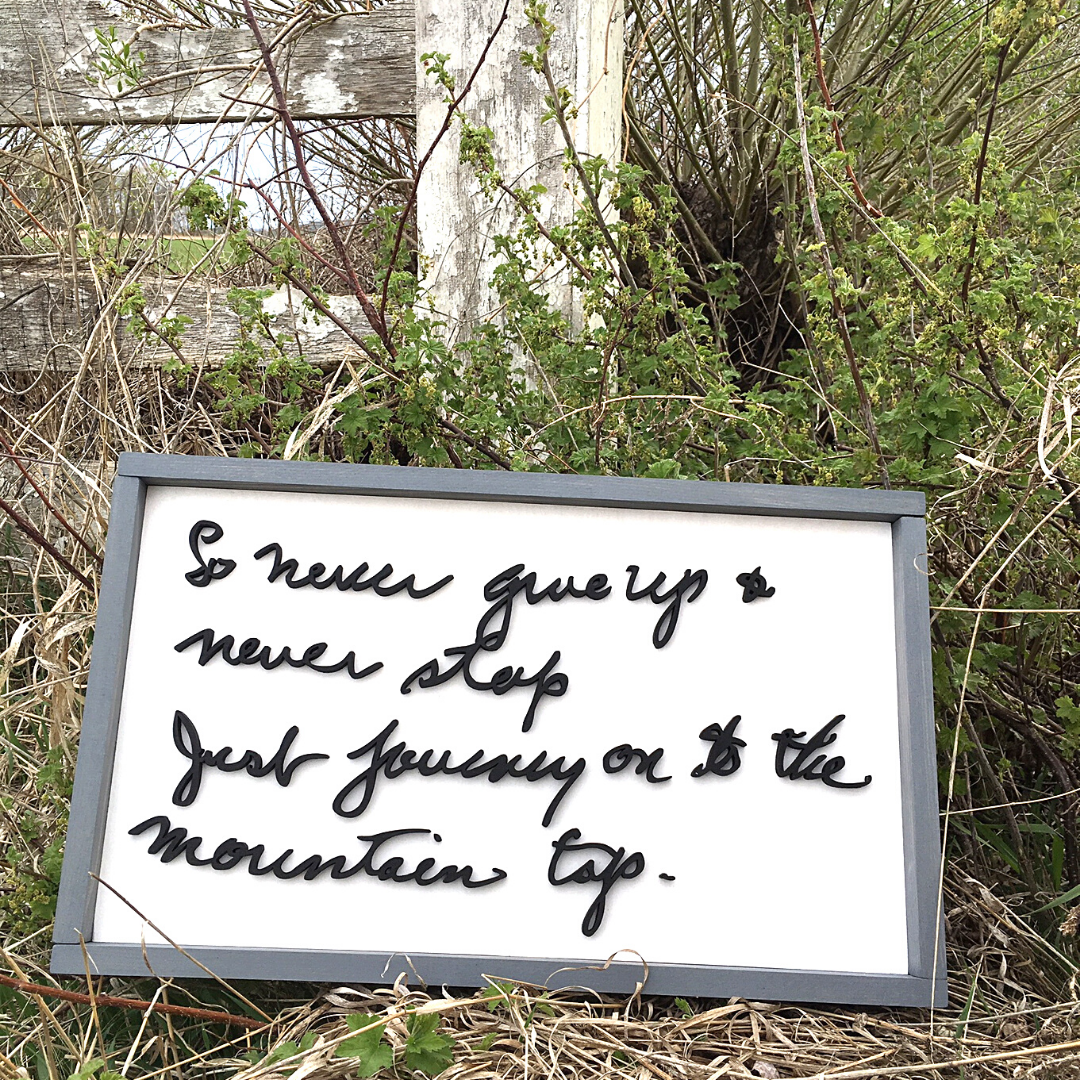 So never give up &
never stop
Just journey on to the
mountain top.